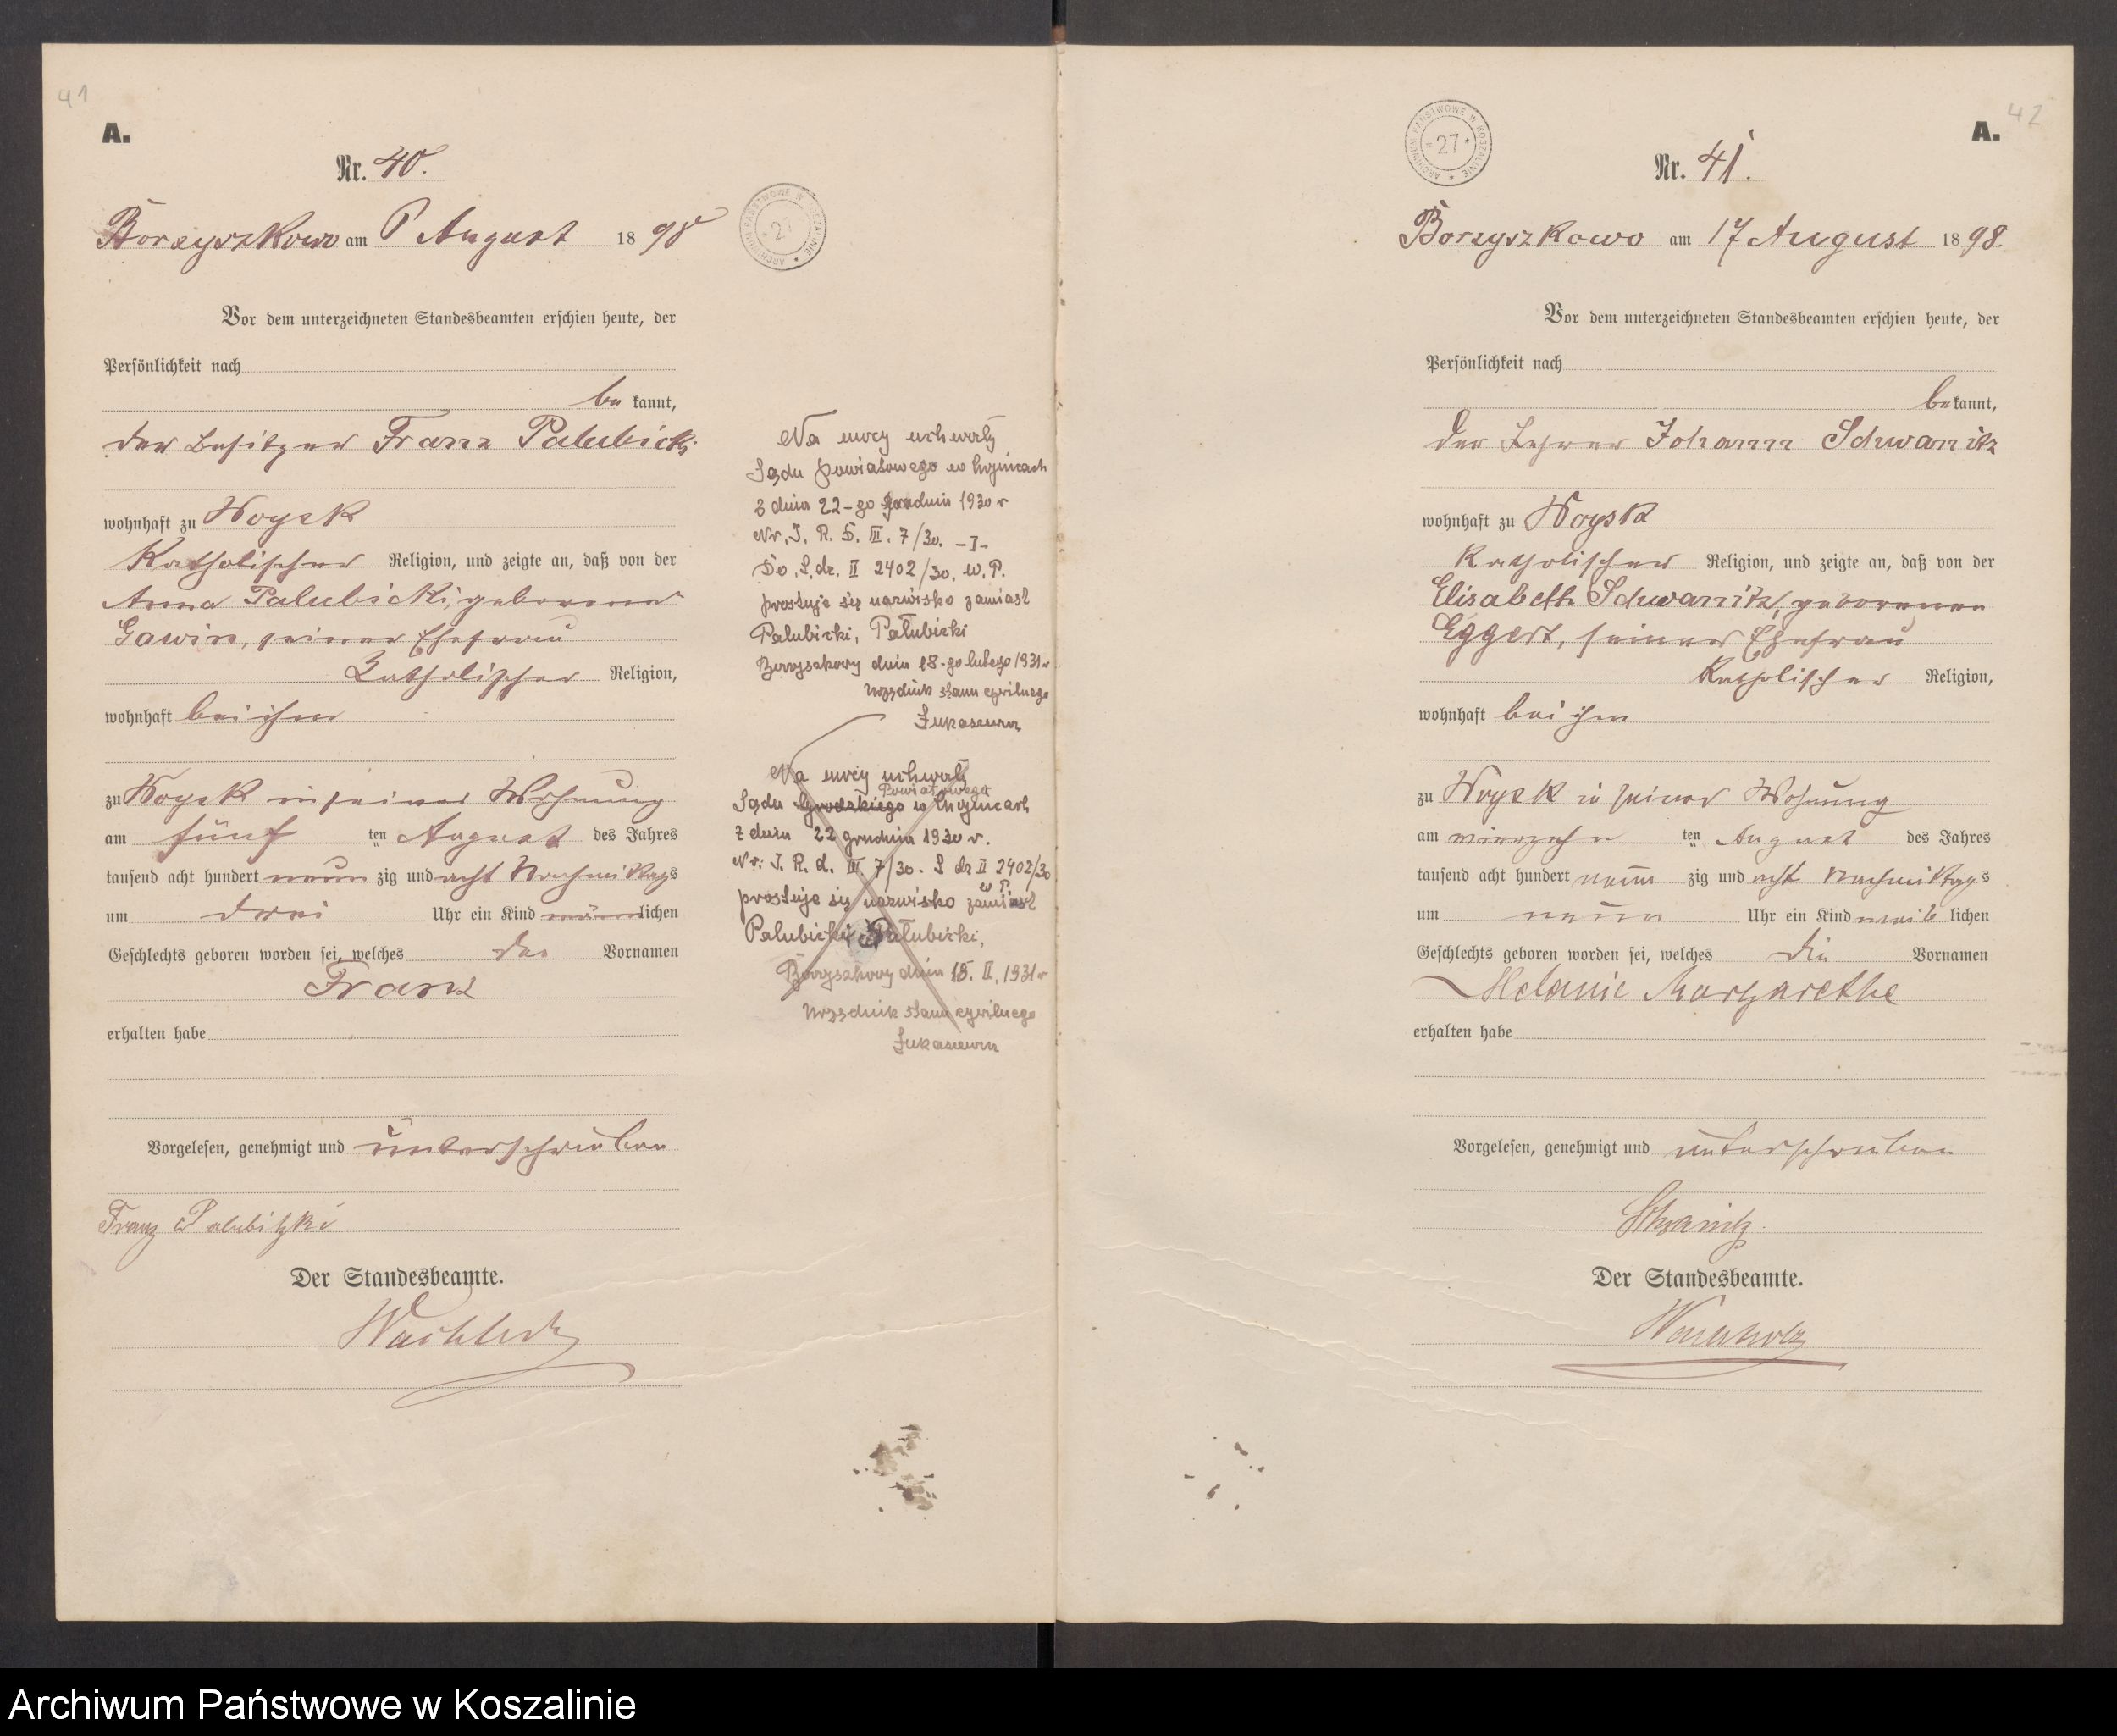 41
A.
Nr. 40.
Borzyszkowo am 8 August 1898
Vor dem unterzeichneten Standesbeamten erschien heute, der
Persönlichkeit nach
bekannt,
der Besitzer Franz Palubicki
wohnhaft zu Woysk
katholischer Religion, und zeigte an, daß von der
Anna Palubicki, geborene
Gawin, seiner Ehefrau
katholischer Religion,
wohnhaft bei ihm
zu Woysk in seiner Wohnung
am fünf ten August des Jahres
tausend acht hundert neun zig und acht Nachmittags
um drei Uhr ein Kind männlichen
Geschlechts geboren worden sei, welches den Vornamen
Franz
erhalten habe
Vorgelesen, genehmigt und unterschrieben
Franz Palubitzki
Der Standesbeamte.
ARCHIWUM PAŃSTWOWE W KOSZALINIE
27
Na mocy uchwały
Sądu Powiatowego w Chojnicach
z dnia 22-go grudnia 1930 r
Nr. III. 7/30. -I-
II 2402/30. w. P.
prostuje się nazwisko zamiast
Palubicki, Pałubicki
Borzyszkowy dnia 18-go lutego 1931 r
Urzędnik stanu cywilnego
Na mocy uchwały
Powiatowego
Sądu Grodzkiego w Chojnicach
z dnia 22 grudnia 1930 r.
Nr. III. 7/30. II 2402/30
w P.
prostuje się nazwisko zamiast
Palubicki Pałubicki,
Borzyszkowy dnia 18. II. 1931 r
Urzędnik stanu cywilnego
42
A.
ARCHIWUM PAŃSTWOWE W KOSZALINIE
27
Nr. 41.
Borzyszkowo am 17 August 1898.
Vor dem unterzeichneten Standesbeamten erschien heute, der
Persönlichkeit nach
bekannt,
der Lehrer Johann Schwanitz
wohnhaft zu Woysk
katholischer Religion, und zeigte an, daß von der
Elisabeth Schwanitz, geborenen
Eggert, seiner Ehefrau
katholischer Religion,
wohnhaft bei ihm
zu Woysk in seiner Wohnung
am vierzehn ten August des Jahres
tausend acht hundert neun zig und acht Nachmittags
um neun Uhr ein Kind weiblichen
Geschlechts geboren worden sei, welches die Vornamen
Melanie Margarethe
erhalten habe
Vorgelesen, genehmigt und unterschrieben
Schwanitz.
Der Standesbeamte.
Archiwum Państwowe w Koszalinie